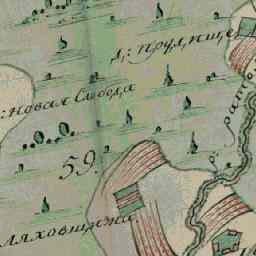 д: прудище
: новая Слобода
59.
ляховщина